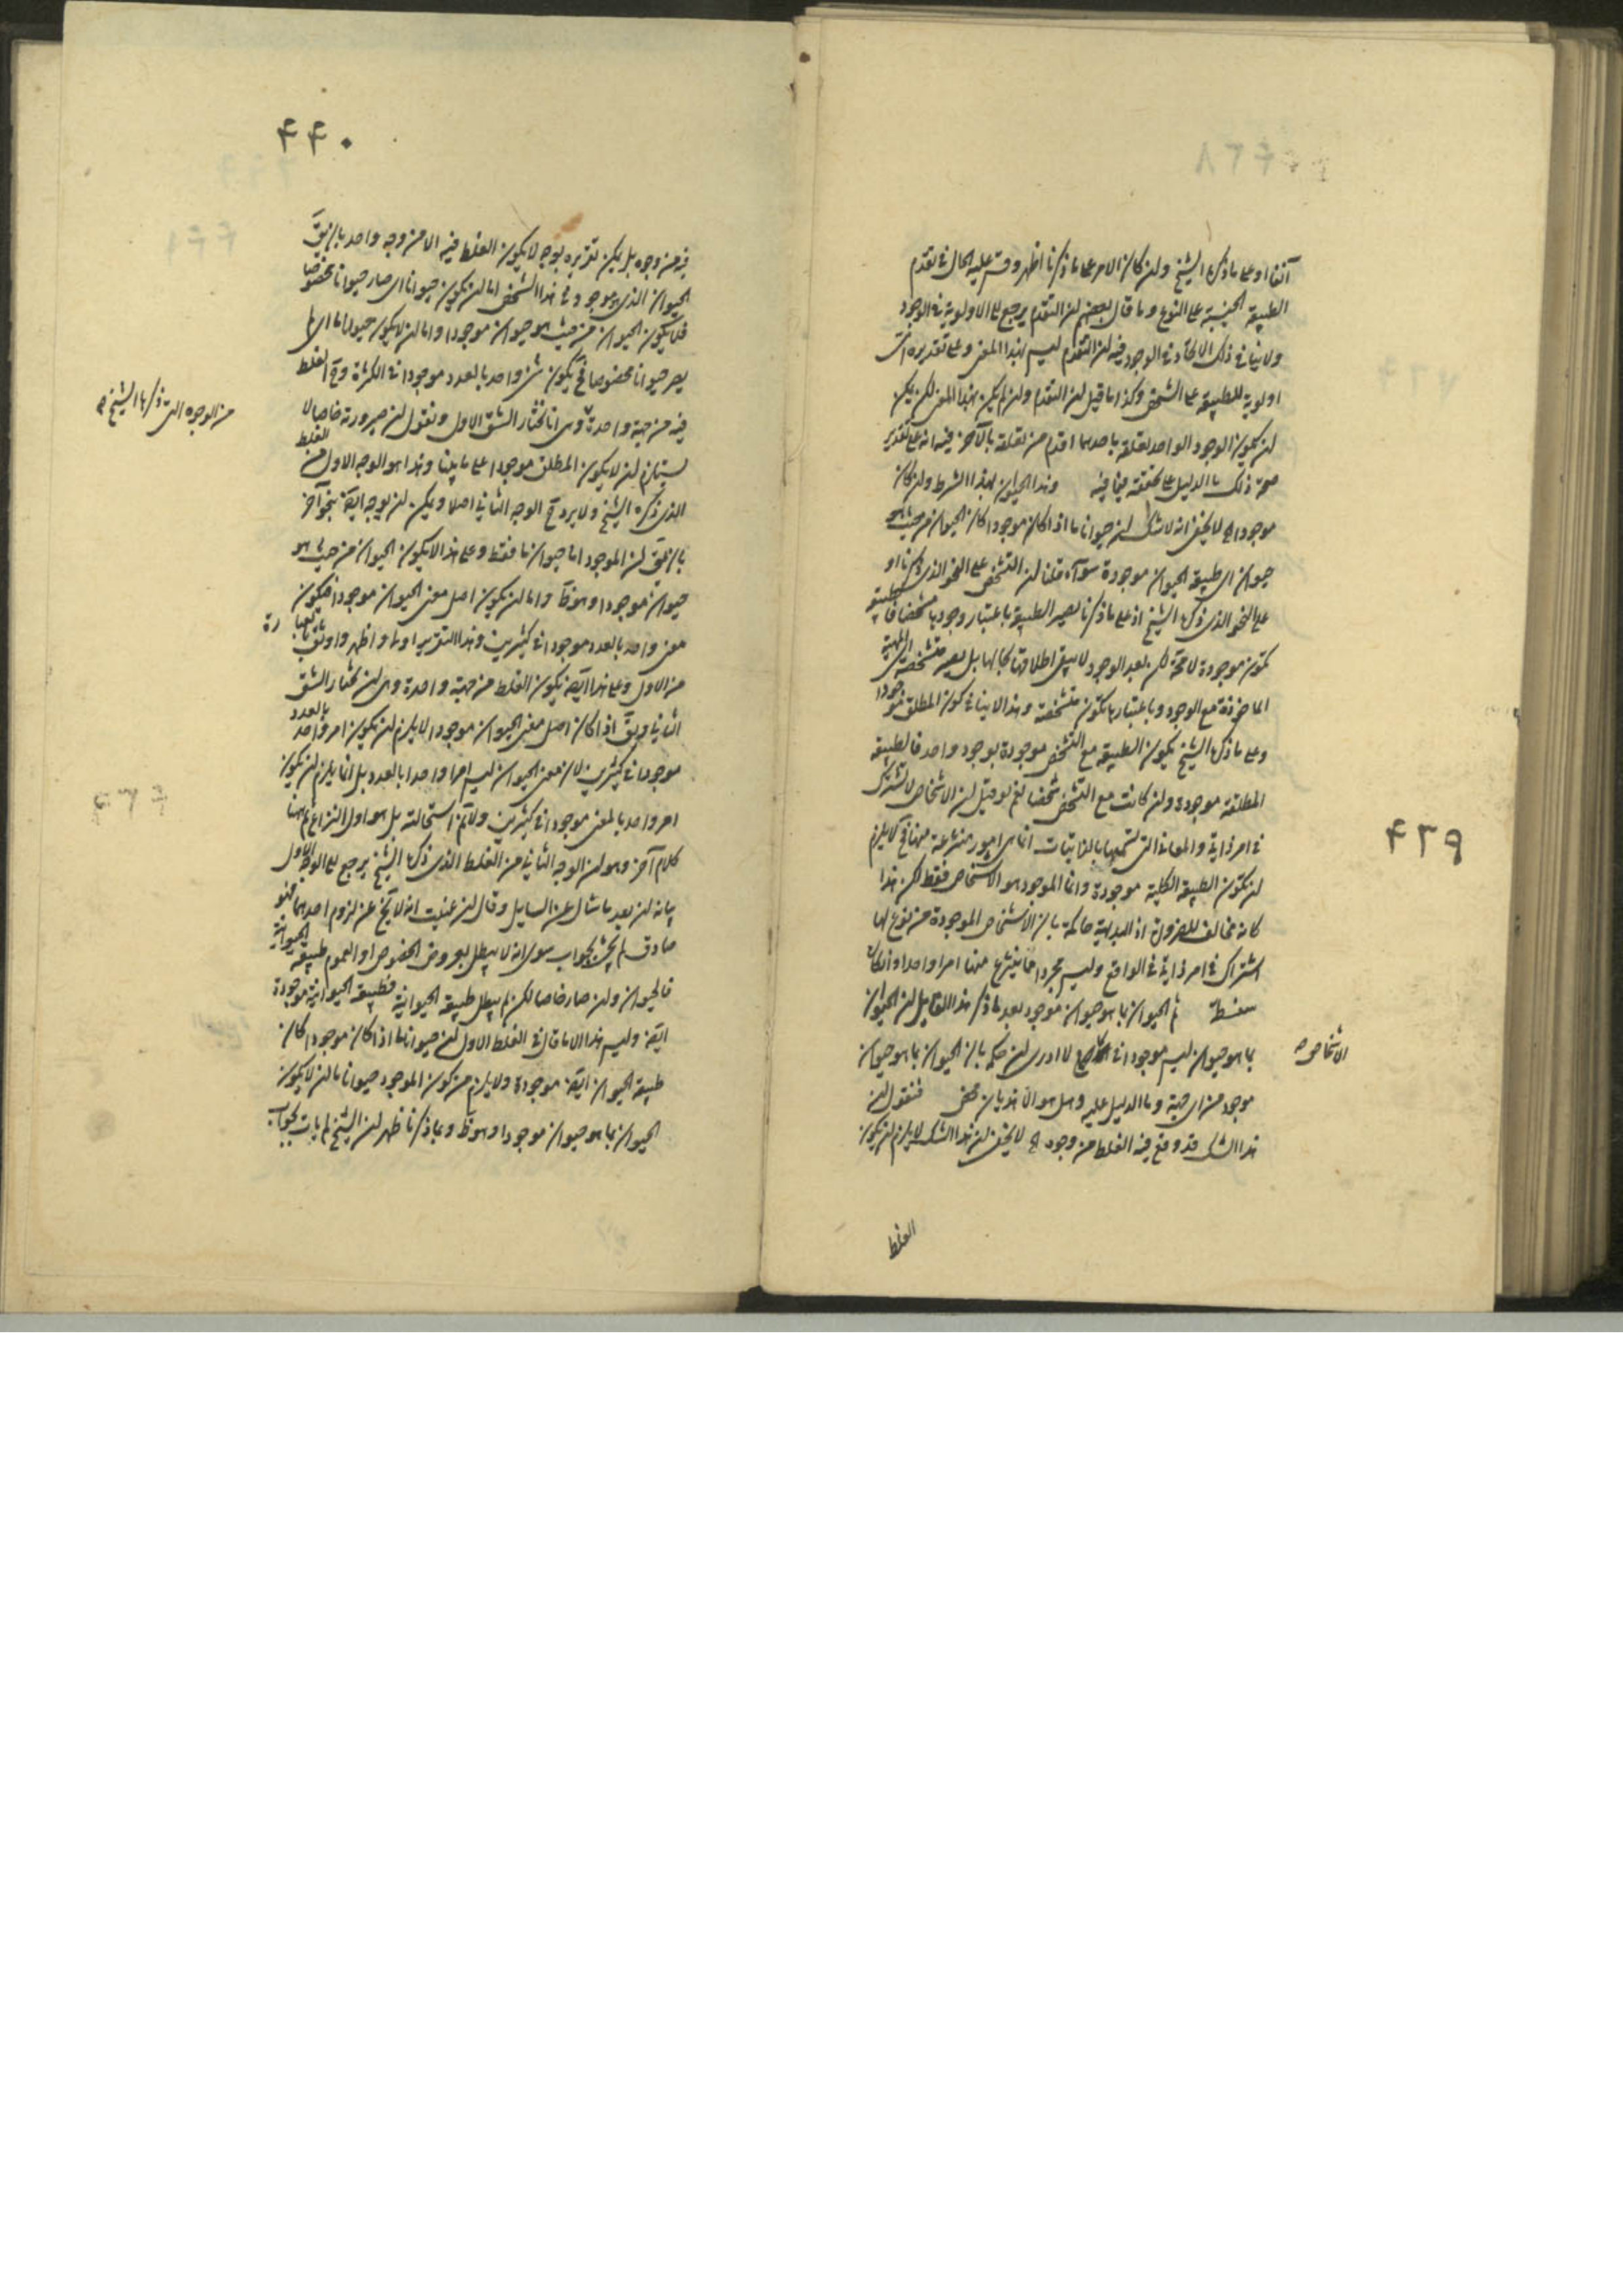 ۴۳۹
آنفا او على ما ذكره الشيخ ولن كان الامر على ما ذكرنا اظهر وقس عليه الحال فى تقدم
الطبيعة الجنسية على النوع وما قال بعضهم لن التقدم يرجع الى الاولوية فى الوجود
ولا ينافى ذلك الاتحاد فى الوجود ففيه لن التقدم ليس بهذا المعنى وعلى تقديره اى
اولوية للطبيعة على الشخص وكذا ما قيل لن التقدم ولن لم يكن بهذا المعنى لكن يمكن
لن يكون الوجود الواحد تعلقه باحدهما اقدم من تعلقه بالآخر ففيه انه على تقدير
صحة ذلك ما الدليل على تحققه فيما فيه وهذا الحيوان بهذا الشرط ولن كان
موجودا اه لا يخفى انه لا شك لن حيوانا ما اذا كان موجودا كان الحيوان من حيث هو
حيوان اى طبيعة الحيوان موجودة سواء قلنا لن التشخص على النحو الذى ذكرنا او
على النحو الذى ذكره الشيخ اذ على ما ذكرنا تصير الطبيعة باعتبار وجودها مشخصا فالطبيعة
تكون موجودة لا محة لكن بعد الوجود لا يبقى اطلاقها بحالها بل يصير متشخصة اى المهية
الماخوذة مع الوجود وباعتبارها تكون متشخصة وهذا لا ينافى كون المطلق موجودا
وعلى ما ذكره الشيخ يكون الطبيعة مع التشخص موجودة بوجود واحد فالطبيعة
المطلقة موجودة ولن كانت مع التشخص شخصا نعم لو قيل لن الاشخاص لا تشترك
فى امر ذاتى والمعانى التى تسميها بالذاتيات انما هى امور منتزعة منها فح لا يلزم
لن تكون الطبيعة الكلية موجودة وانما الموجود هو الاشخاص فقط لكن هذا
كانه مخالف للضرورة اذ البديهة حاكمة بان الاشخاص الموجودة من نوع لها
اشتراك فى امر ذاتى فى الواقع وليس مجرد انا ننتزع منها امرا واحدا وانكاره
سفسطة ثم الحيوان بما هو حيوان موجود بعد ما ذكر هذا القايل لن الحيوان
بما هو حيوان ليس موجودا فى لا ادرى لن حكمه بان الحيوان بما هو حيوان
الاشخاص صح
موجود من اى جهة وما الدليل عليه وهل هو الا هذيان محض فنقول لن
هذا الشك قد وقع فيه الغلط من وجوه اه لا يخفى لن هذا الشك لا يلزم لن يكون
الغلط
۴۴۰
فيه من وجوه بل يمكن تقريره بوجه لا يكون الغلط فيه الا من وجه واحد بان يق
الحيوان الذى هو موجود فى هذا الشخص اما لن يكون حيوانا اى صار حيوانا مخصوصا
فلا يكون الحيوان من حيث هو حيوان موجودا واما لن لا يكون حيوانا ما اى لم
يصر حيوانا مخصوصا فح يكون شئ واحد بالعدد موجودا فى الكثرة وح الغلط
فيه من جهة واحدة وهى انا نختار الشق الاول ونقول لن صيرورته خاصا لا
من الوجوه التى ذكرها الشيخ صح
يستلزم لن لا يكون المطلق موجودا على ما بينا وهذا هو الوجه الاول من الغلط
الذى ذكره الشيخ ولا يرد ح الوجه الثانى اصلا ويمكن لن يوجه ايضا بنحو آخر
بان يق لن الموجود اما حيوان ما فقط وعلى هذا لا يكون الحيوان من حيث هو
حيوان موجودا وهو خلف واما لن يكون اصل معنى الحيوان موجودا فيكون
معنى واحد بالعدد موجودا فى كثيرين وهذا التقرير اولى واظهر واوفق بالعبارة
من الاول وعلى هذا ايضا يكون الغلط من جهة واحدة وهى لن نختار الشق
الثانى ويق اذا كان اصل معنى الحيوان موجودا لا يلزم لن يكون امر واحد بالعدد
موجودا فى كثيرين لان معنى الحيوان ليس امرا واحدا بالعدد بل انما يلزم لن يكون
امر واحد بالمعنى موجودا فى كثيرين ولا نم استحالته بل هو اول النزاع ثم ههنا
كلام آخر وهو لن الوجه الثانى من الغلط الذى ذكره الشيخ يرجع الى الوجه الاول
بيانه لن بعد ما سال عن السايل وقال لن عنيت انه لا يخ عن لزوم احدهما فهو
صادق لم يجب بجواب سوى انه لا يبطل بعروض الخصوص او العموم طبيعة الحيوانية
فالحيوان ولن صار خاصا لكن لم يبطل طبيعة الحيوانية فطبيعة الحيوانية موجودة
ايضا وليس هذا الا ما قال فى الغلط الاول لن حيوانا ما اذا كان موجودا كان
طبيعة الحيوان ايضا موجودة ولا يلزم من كون الموجود حيوانا ما لن لا يكون
الحيوان بما هو حيوان موجودا وهو ظ وبما ذكرنا ظهر لن الشيخ لم يات بجواب